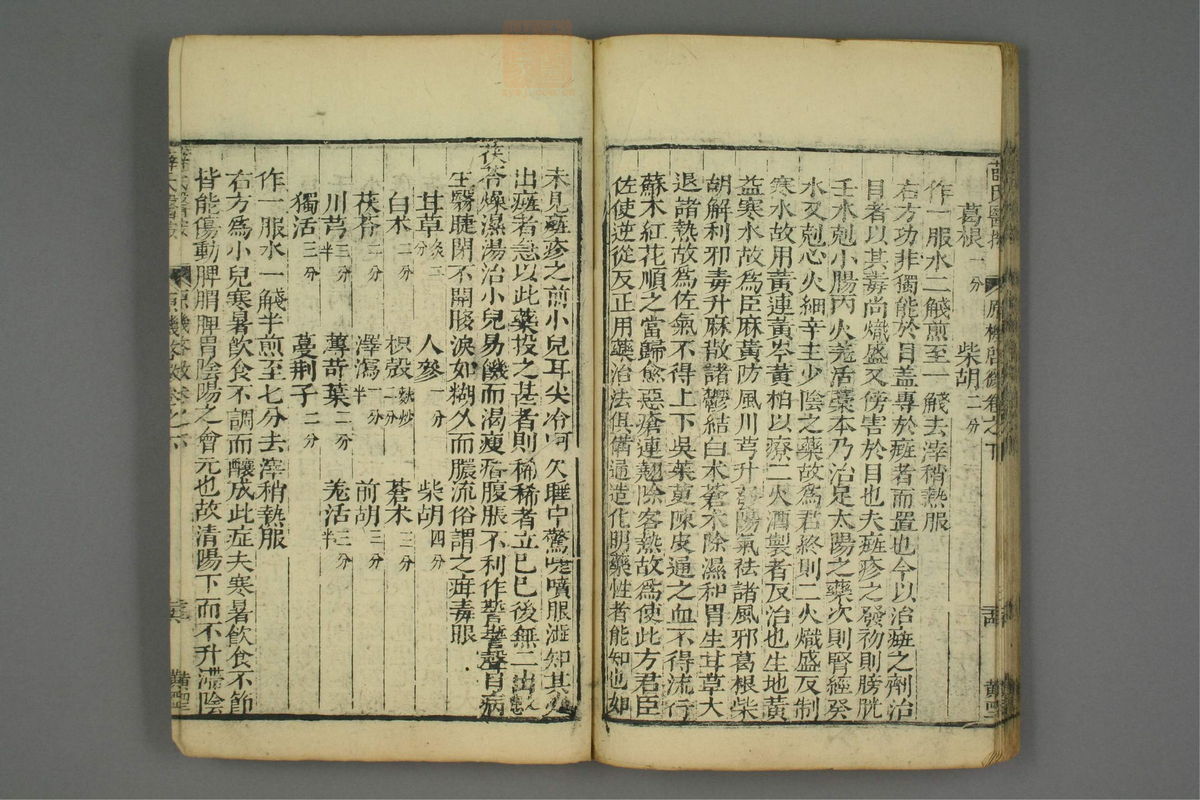 葛根一分 柴胡二分
作一服水二餞煎至一餞去滓稍熱服
右方功非獨能於目盖專於癍者而置也今以治癍之劑治
目者以其毒尚熾盛又傍害於目也夫癍疹之發初則膀胱
壬水剋小腸丙火羗活藁本乃治足太陽之藥次則腎經癸
水又剋心火細辛主少陰之藥故爲君終則二火熾盛反制
寒水故用黃連黃芩黃栢以療二火酒製者反治也生地黃
益寒水故爲臣麻黃防風川芎升發陽氣祛諸風邪葛根柴
胡解利邪毒升麻散諸鬱結白术蒼术除濕和胃生甘草大
退諸熱故爲佐氣不得上下吳茱萸陳皮通之血不得流行
蘇木紅花順之當歸愈惡瘡連翹除客熱故爲使此方君臣
佐使逆從反正用藥治法俱備通造化明藥性者能知也如
未見癍疹之前小兒耳尖冷呵欠睡中驚嚏噴眼澁知其必
出癍者急以此藥投之甚者則稀稀者立已已後無二出
茯苓燥濕湯治小兒易饑而渴瘦瘠腹脹不利作聲目病
生翳睫閉不開眵淚如糊久而膿流俗謂之疳毒眼
甘草炙三分 人參一分 柴胡四分
白术二分 枳殼麩炒二分 蒼术三分
茯苓二分 澤瀉一分半 前胡三分
川芎三分半 薄荷葉二分 羗活三分半
獨活三分 蔓荆子二分
作一服水一餞半煎至七分去滓稍熱服
右方爲小兒寒暑飮食不調而釀成此症夫寒暑飮食不節
皆能傷動脾胃脾胃陰陽之會元也故清陽下而不升濁陰